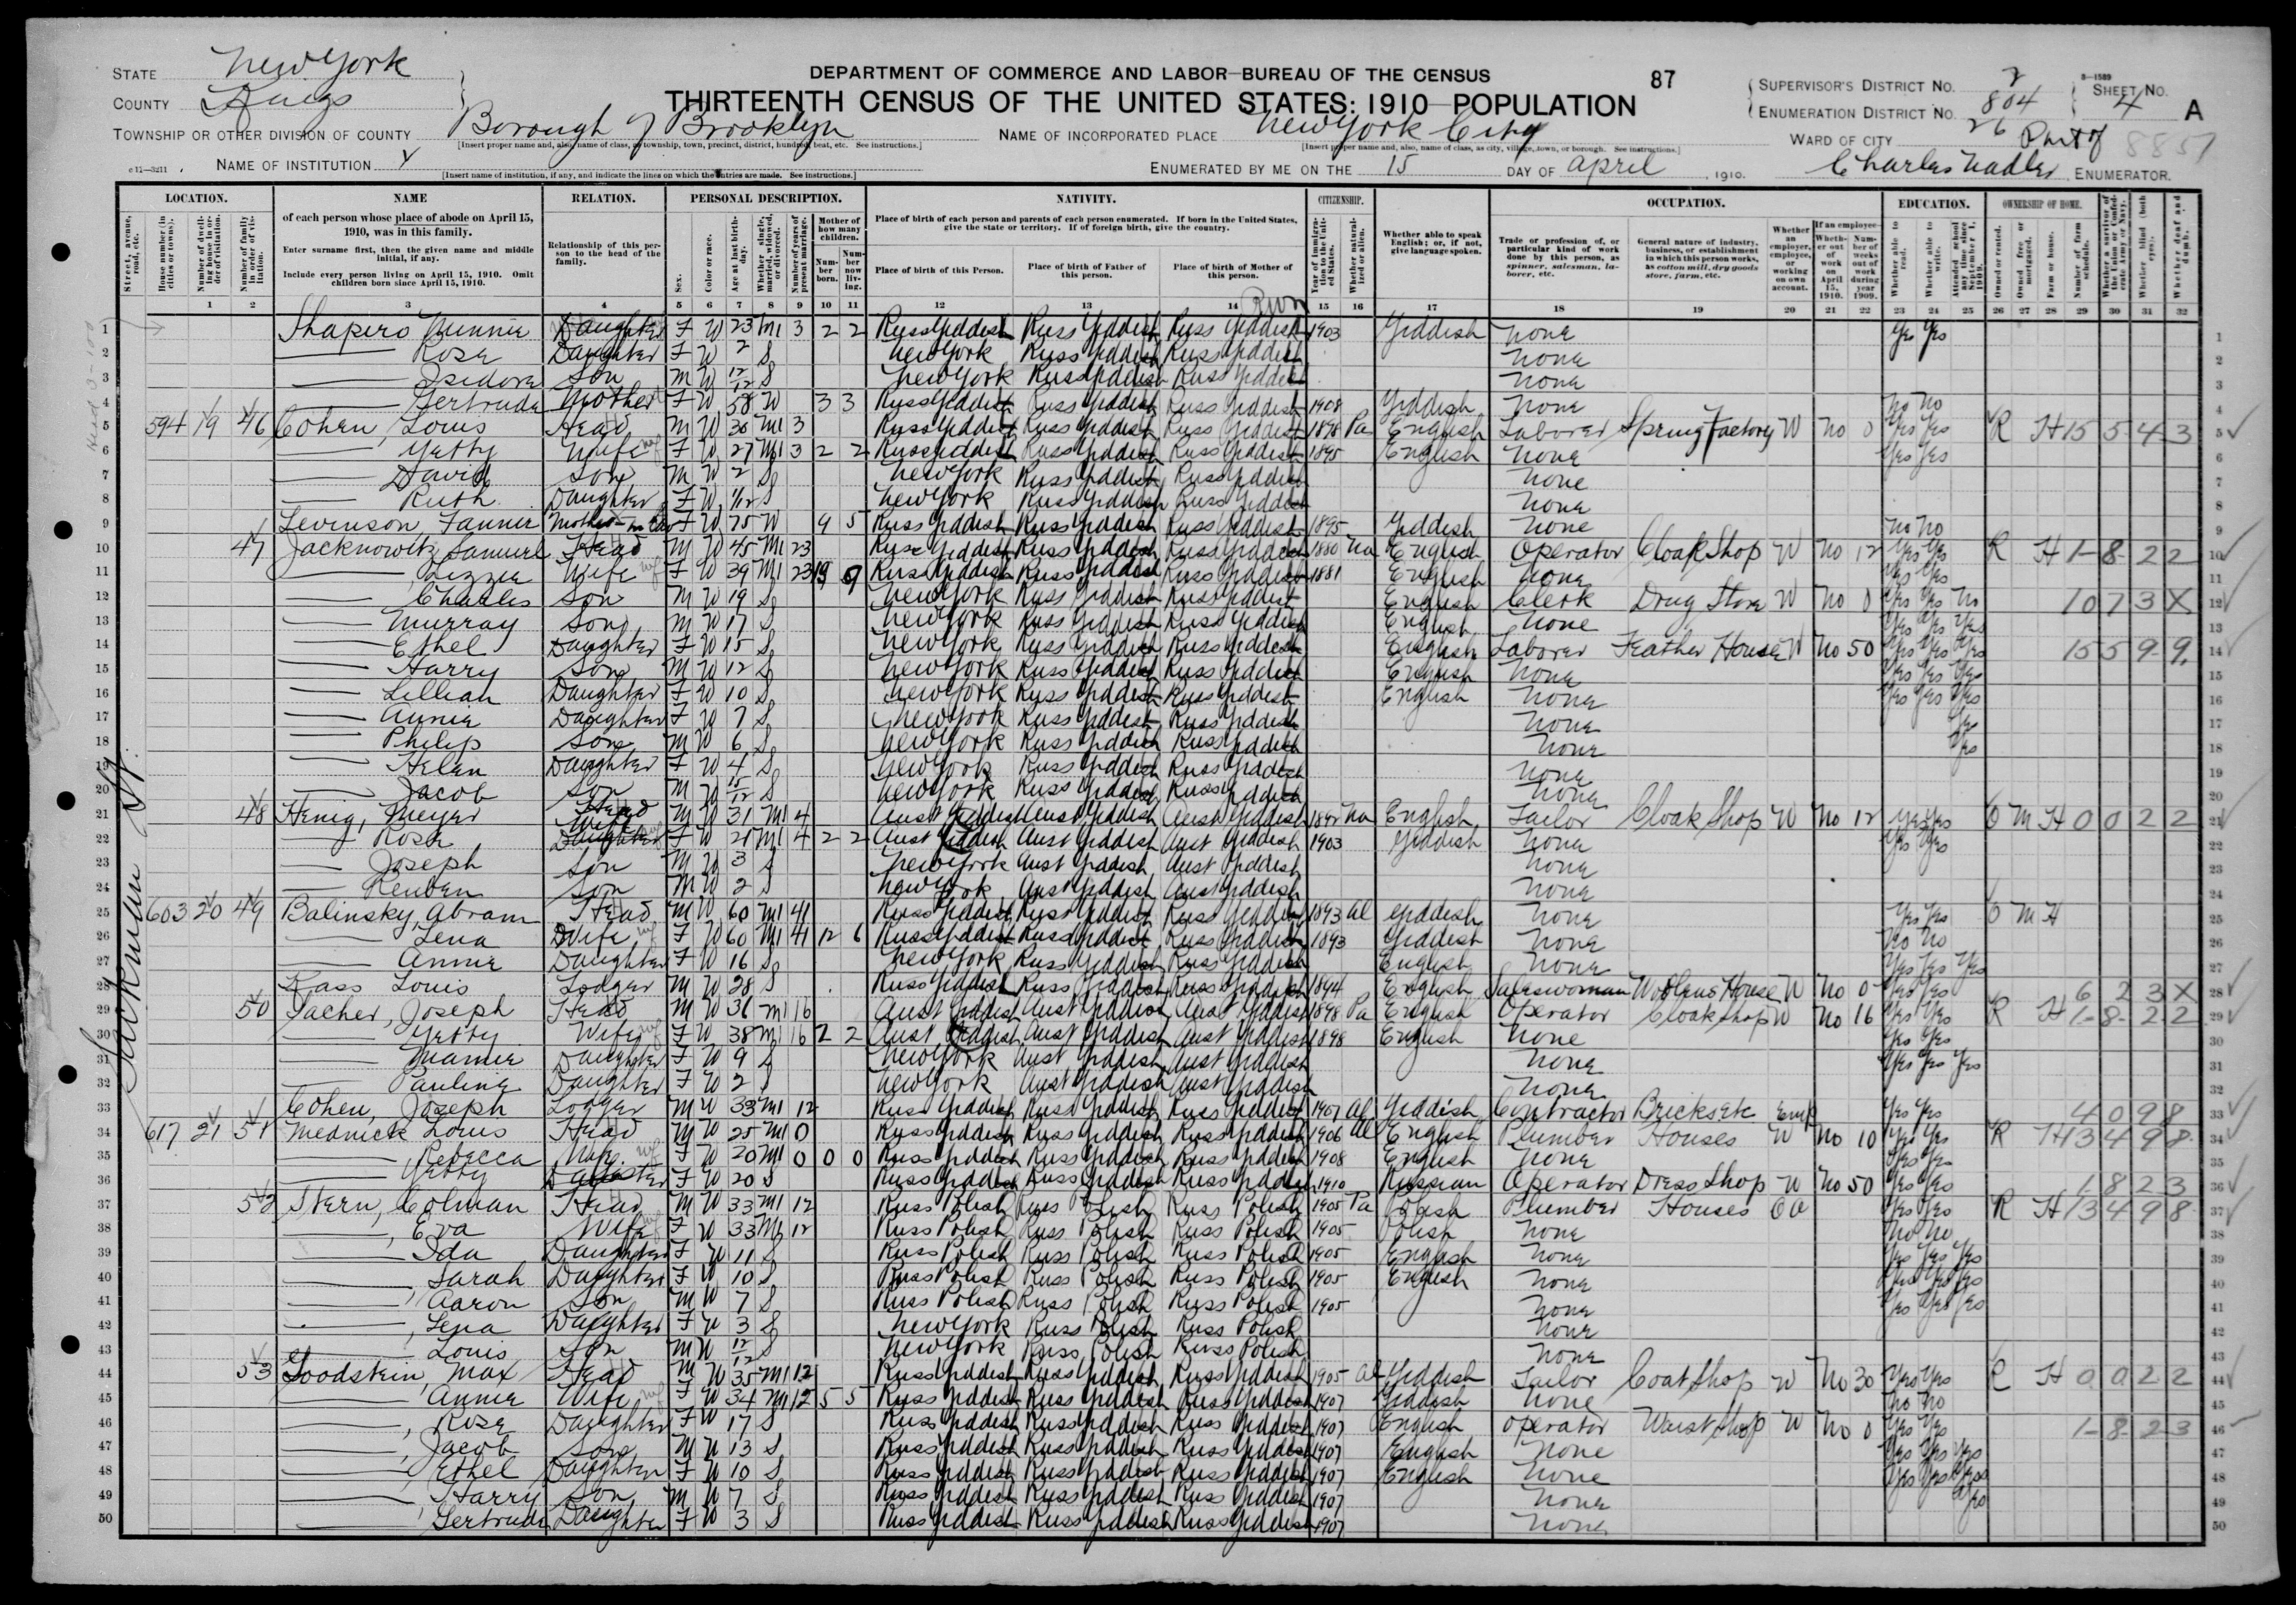 STATE New York
COUNTY Kings
TOWNSHIP OR OTHER DIVISION OF COUNTY Borough of Brooklyn
[Insert proper name and, also, name of class, as township, town, precinct, district, hundred, beat, etc. See instructions.]
NAME OF INSTITUTION
[Insert name of institution, if any, and indicate the lines on which the entries are made. See instructions.]
DEPARTMENT OF COMMERCE AND LABOR—BUREAU OF THE CENSUS
THIRTEENTH CENSUS OF THE UNITED STATES: 1910—POPULATION
87
NAME OF INCORPORATED PLACE New York City
[Insert proper name and, also, name of class, as city, village, town, or borough. See instructions.]
ENUMERATED BY ME ON THE 15 DAY OF April, 1910.
Charles Nadler ENUMERATOR.
SUPERVISOR'S DISTRICT No. 2
ENUMERATION DISTRICT No. 804
WARD OF CITY 26 Part of
8-1589
SHEET No. 4 A
8857
LOCATION. NAME RELATION. PERSONAL DESCRIPTION. NATIVITY. CITIZENSHIP. OCCUPATION. EDUCATION. OWNERSHIP OF HOME.
of each person whose place of abode on April 15, 1910, was in this family.
Enter surname first, then the given name and middle initial, if any.
Include every person living on April 15, 1910. Omit children born since April 15, 1910.
Relationship of this person to the head of the family.
Place of birth of each person and parents of each person enumerated. If born in the United States, give the state or territory. If of foreign birth, give the country.
Place of birth of this Person. Place of birth of Father of this person. Place of birth of Mother of this person.
Whether able to speak English; or, if not, give language spoken.
Trade or profession of, or particular kind of work done by this person, as spinner, salesman, laborer, etc.
General nature of industry, business, or establishment in which this person works, as cotton mill, dry goods store, farm, etc.
1 2 3 4 5 6 7 8 9 10 11 12 13 14 15 16 17 18 19 20 21 22 23 24 25 26 27 28 29 30 31 32
Jackman St.
1 Shapero Minnie Daughter F W 23 M1 3 2 2 Russ Yiddish Russ Yiddish Russ Yiddish 1903 Yiddish None Yes Yes
2 Rose Daughter F W 2 S New York Russ Yiddish Russ Yiddish None
3 Isidore Son M W 12/12 S New York Russ Yiddish Russ Yiddish None
4 Gertrude Mother F W 58 W 3 3 Russ Yiddish Russ Yiddish Russ Yiddish 1908 Yiddish None No No
5 594 19 46 Cohen, Louis Head M W 30 M1 3 Russ Yiddish Russ Yiddish Russ Yiddish 1898 Pa English Laborer Spring Factory W No 0 Yes Yes R H 15 5 4 3
6 Yetty Wife F W 27 M1 3 2 2 Russ Yiddish Russ Yiddish Russ Yiddish 1895 English None Yes Yes
7 David Son M W 2 S New York Russ Yiddish Russ Yiddish None
8 Ruth Daughter F W 1/12 S New York Russ Yiddish Russ Yiddish None
9 Levinson, Fannie Mother-in-law F W 75 W 9 5 Russ Yiddish Russ Yiddish Russ Yiddish 1895 Yiddish None No No
10 47 Jacknowitz, Samuel Head M W 45 M1 23 Russ Yiddish Russ Yiddish Russ Yiddish 1880 Na English Operator Cloak Shop W No 12 Yes Yes R H 1-8-2 2
11 Lizzie Wife F W 39 M1 23 9 Russ Yiddish Russ Yiddish Russ Yiddish 1881 English None Yes Yes
12 Charles Son M W 19 S New York Russ Yiddish Russ Yiddish English Clerk Drug Store W No 0 Yes Yes No 10 7 3 X
13 Murray Son M W 17 S New York Russ Yiddish Russ Yiddish English None Yes Yes Yes
14 Ethel Daughter F W 15 S New York Russ Yiddish Russ Yiddish English Laborer Feather House W No 50 Yes Yes Yes 15 5 9 9
15 Harry Son M W 12 S New York Russ Yiddish Russ Yiddish English None Yes Yes Yes
16 Lillian Daughter F W 10 S New York Russ Yiddish Russ Yiddish English None Yes Yes Yes
17 Annie Daughter F W 7 S New York Russ Yiddish Russ Yiddish None Yes
18 Philip Son M W 6 S New York Russ Yiddish Russ Yiddish None Yes
19 Helen Daughter F W 4 S New York Russ Yiddish Russ Yiddish None
20 Jacob Son M W 15/12 S New York Russ Yiddish Russ Yiddish None
21 48 Henig, Meyer Head M W 31 M1 4 Aust Yiddish Aust Yiddish Aust Yiddish 1892 Na English Tailor Cloak Shop W No 12 Yes Yes O M H 0 0 2 2
22 Rose Wife F W 21 M1 4 2 2 Aust Yiddish Aust Yiddish Aust Yiddish 1903 Yiddish None Yes Yes
23 Joseph Son M W 3 S New York Aust Yiddish Aust Yiddish None
24 Reuben Son M W 2 S New York Aust Yiddish Aust Yiddish None
25 603 20 49 Balinsky, Abram Head M W 60 M1 41 Russ Yiddish Russ Yiddish Russ Yiddish 1893 Al Yiddish None Yes Yes O M H
26 Lena Wife F W 60 M1 41 12 6 Russ Yiddish Russ Yiddish Russ Yiddish 1893 Yiddish None No No
27 Annie Daughter F W 16 S New York Russ Yiddish Russ Yiddish English None Yes Yes Yes
28 Kass Louis Lodger M W 28 S Russ Yiddish Russ Yiddish Russ Yiddish 1894 English Saleswoman Woolens House W No 0 Yes Yes 6 2 3 X
29 50 Tacher, Joseph Head M W 36 M1 16 Aust Yiddish Aust Yiddish Aust Yiddish 1898 Pa English Operator Cloak Shop W No 16 Yes Yes R H 1-8-2 2
30 Yetty Wife F W 38 M1 16 2 2 Aust Yiddish Aust Yiddish Aust Yiddish 1898 English None Yes Yes
31 Mamie Daughter F W 9 S New York Aust Yiddish Aust Yiddish None Yes Yes Yes
32 Pauline Daughter F W 2 S New York Aust Yiddish Aust Yiddish None
33 Cohen, Joseph Lodger M W 33 M1 12 Russ Yiddish Russ Yiddish Russ Yiddish 1907 Al Yiddish Contractor Bricks etc Emp Yes Yes 4 0 9 8
34 617 21 51 Mednick Louis Head M W 25 M1 0 Russ Yiddish Russ Yiddish Russ Yiddish 1906 Al English Plumber Houses W No 10 Yes Yes R H 13 4 9 8
35 Rebecca Wife F W 20 M1 0 0 0 Russ Yiddish Russ Yiddish Russ Yiddish 1908 English None Yes Yes
36 Yetty F W 20 S Russ Yiddish Russ Yiddish Russ Yiddish 1910 Russian Operator Dress Shop W No 50 Yes Yes 1 8 2 3
37 52 Stern, Colman Head M W 33 M1 12 Russ Polish Russ Polish Russ Polish 1905 Pa Polish Plumber Houses OA Yes Yes R H 13 4 9 8
38 Eva Wife F W 33 M1 12 Russ Polish Russ Polish Russ Polish 1905 Polish None No No
39 Ida Daughter F W 11 S Russ Polish Russ Polish Russ Polish 1905 English None Yes Yes Yes
40 Sarah Daughter F W 10 S Russ Polish Russ Polish Russ Polish 1905 English None Yes Yes Yes
41 Aaron Son M W 7 S Russ Polish Russ Polish Russ Polish 1905 None Yes Yes Yes
42 Lena Daughter F W 3 S New York Russ Polish Russ Polish None
43 Louis Son M W 12/12 S New York Russ Polish Russ Polish None
44 53 Goodstein, Max Head M W 35 M1 12 Russ Yiddish Russ Yiddish Russ Yiddish 1905 Al Yiddish Tailor Coat Shop W No 30 Yes Yes R H 0 0 2 2
45 Annie Wife F W 34 M1 12 5 5 Russ Yiddish Russ Yiddish Russ Yiddish 1907 Yiddish None No No
46 Rose Daughter F W 17 S Russ Yiddish Russ Yiddish Russ Yiddish 1907 English Operator Waist Shop W No 0 Yes Yes 1-8-2 3
47 Jacob Son M W 13 S Russ Yiddish Russ Yiddish Russ Yiddish 1907 English None Yes Yes Yes
48 Ethel Daughter F W 10 S Russ Yiddish Russ Yiddish Russ Yiddish 1907 English None Yes Yes Yes
49 Harry Son M W 7 S Russ Yiddish Russ Yiddish Russ Yiddish 1907 None Yes
50 Gertrude Daughter F W 3 S Russ Yiddish Russ Yiddish Russ Yiddish 1907 None